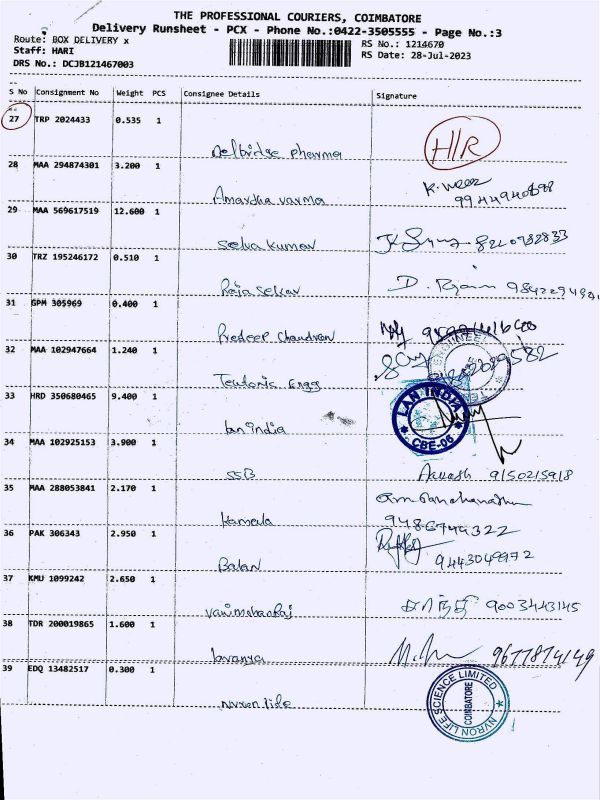 THE PROFESSIONAL COURIERS, COIMBATORE
Delivery Runsheet - PCX - Phone No.:0422-3505555 - Page No.:3
Route: BOX DELIVERY x
RS No.: 1214670
Staff: HARI
RS Date: 28-Jul-2023
DRS No.: DCJB121467003
S No Consignment No Weight PCS Consignee Details Signature
27 TRP 2024433 0.535 1
Delbridge pharma H/R
28 MAA 294874301 3.200 1
Amardha varma
29 MAA 569617519 12.600 1
Selva kumar
30 TRZ 195246172 0.510 1
Raja Sekar D.
31 GPM 305969 0.400 1
Predeep Chandran
32 MAA 102947664 1.240 1
Teutonic Engg
33 HRD 350680465 9.400 1
Lan india LAN INDIA CBE-06
34 MAA 102925153 3.900 1
SSB Aakash 9150215918
35 MAA 288053841 2.170 1
Kamala 9486749322
36 PAK 306343 2.950 1
Balan 9443049972
37 KMU 1099242 2.650 1
Vanimohanraj 9003443145
38 TDR 200019865 1.600 1
Lavanya 9677874149
39 EDQ 13482517 0.300 1
Nvron life NVRON LIFE SCIENCE LIMITED COIMBATORE